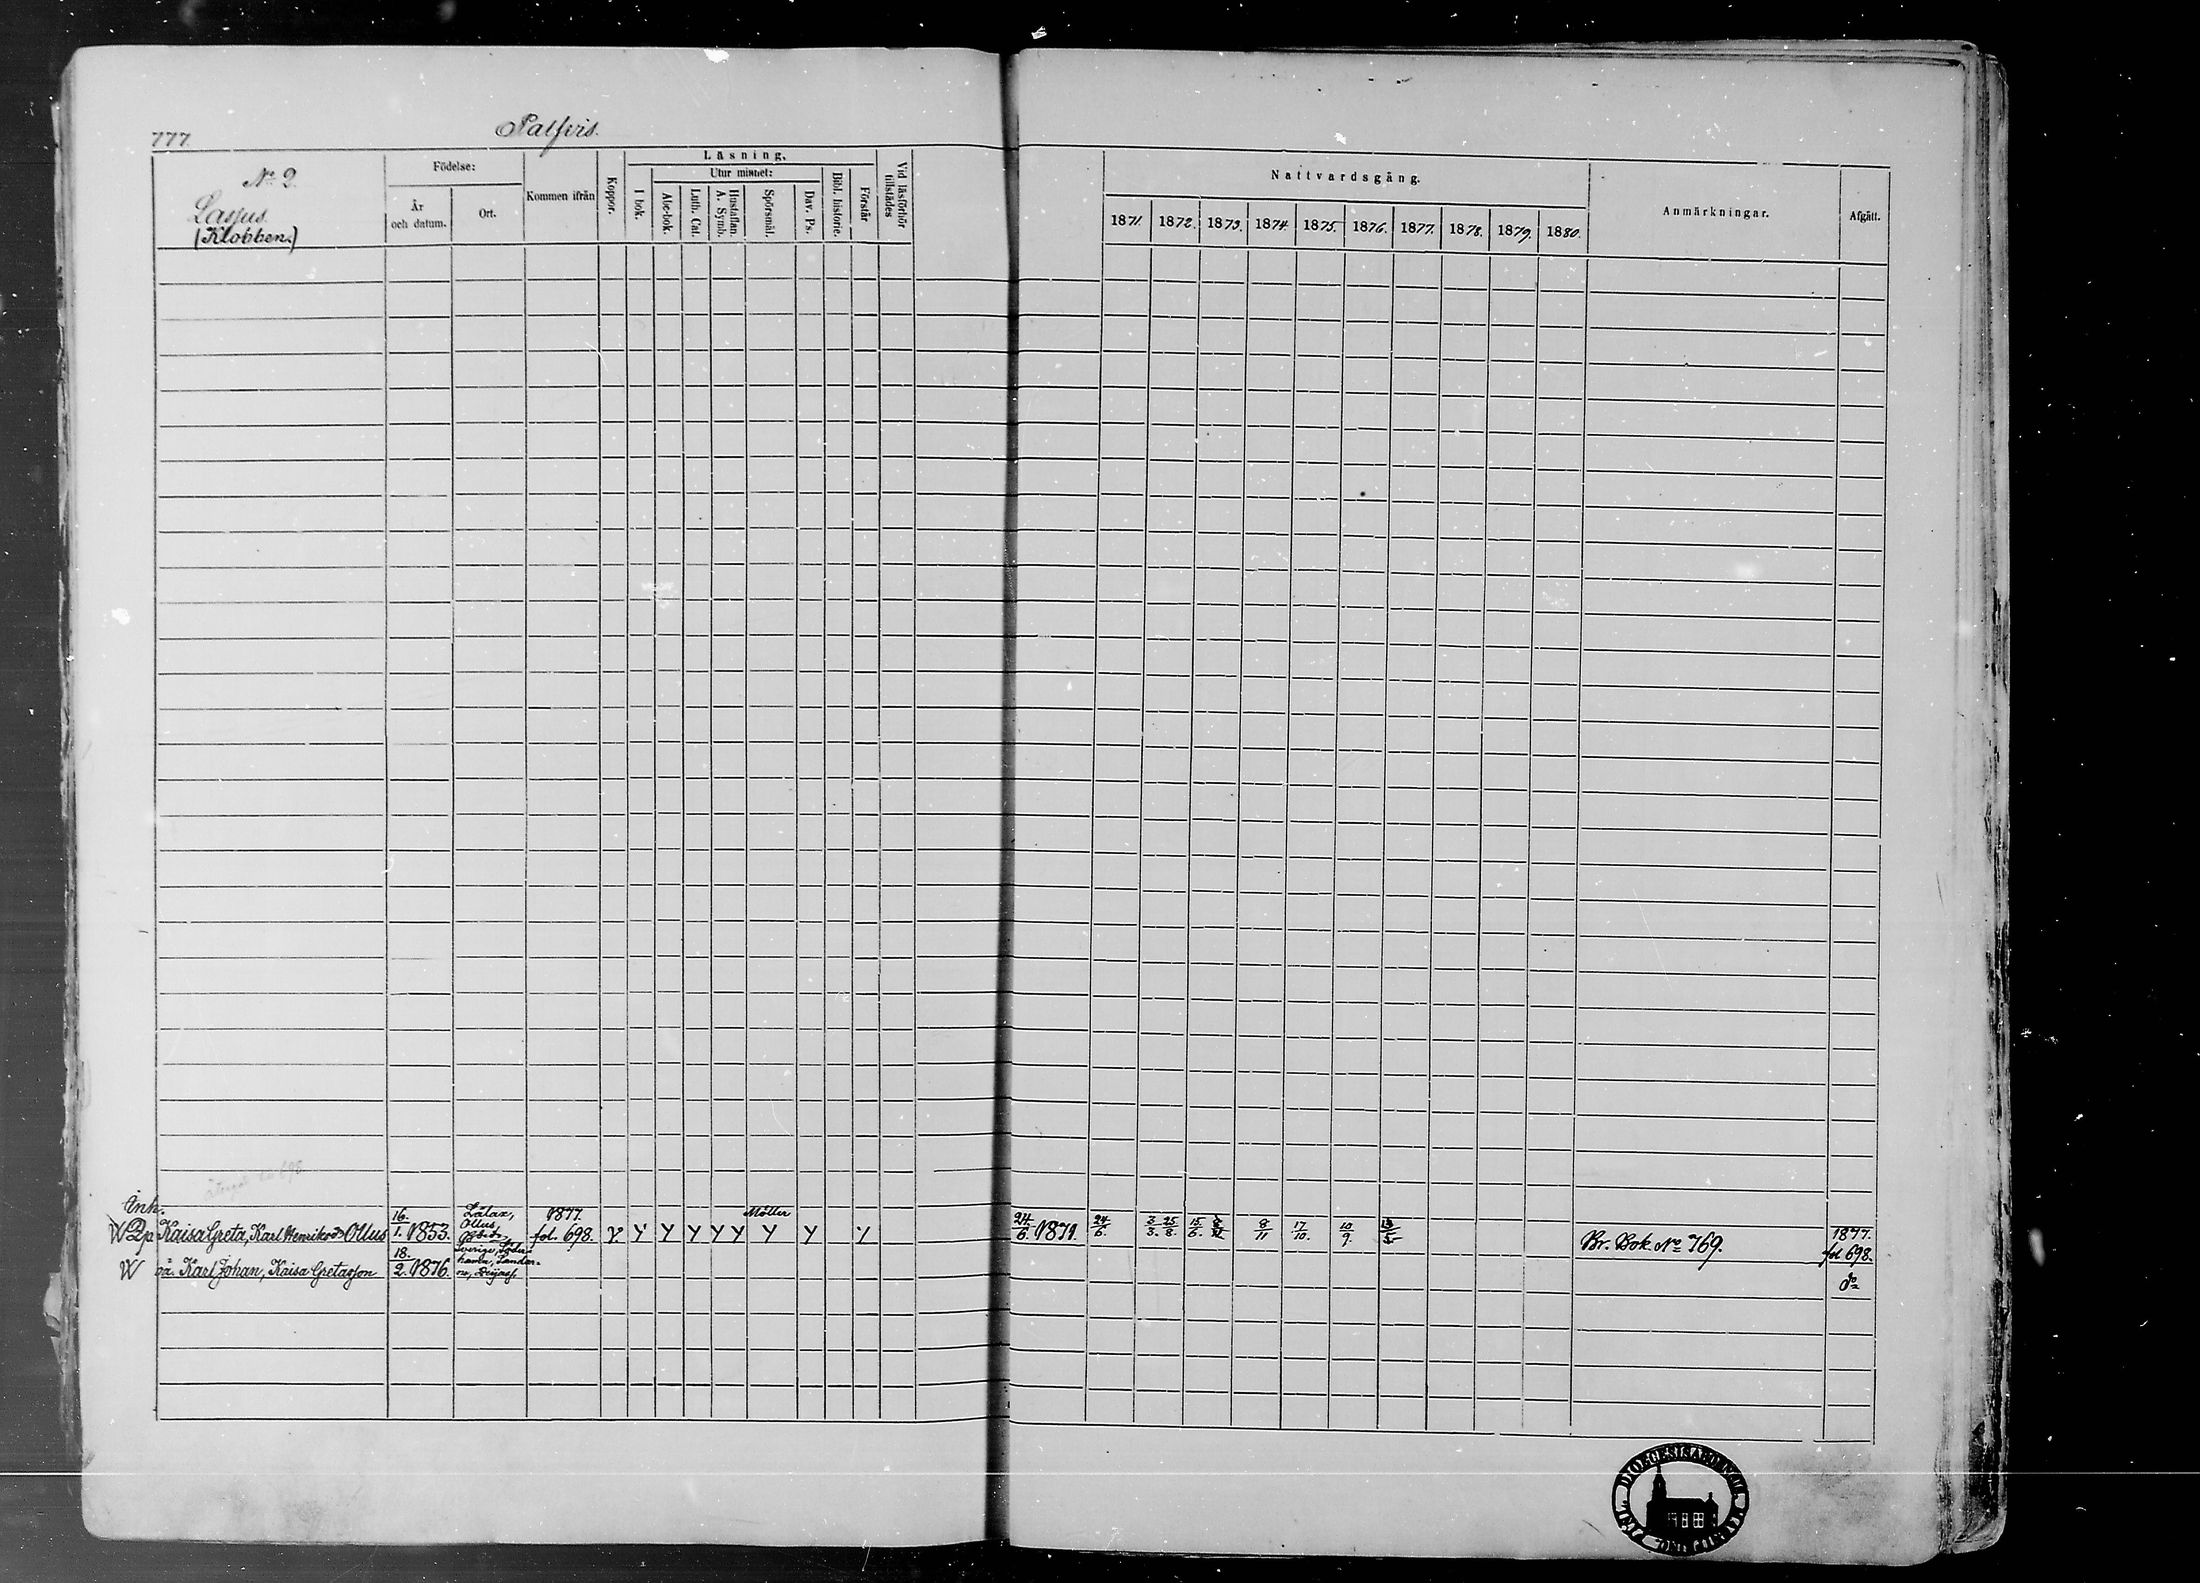 777.
Palfvis.
No 2.
Lassus.
(Klobben.)
Födelse:
År
och datum.
Ort.
Kommen ifrån
Koppor.
Läsning.
I bok.
Utur minnet:
Abc-bok.
Luth. Cat.
Hustaflan.
A. Symb.
Spörsmål.
Dav. Ps.
Bibl. historie.
Förstår
Vid läsförhör
tillstädes
Nattvardsgång.
1871. 1872. 1873. 1874. 1875. 1876. 1877. 1878. 1879. 1880.
Anmärkningar.
Afgått.
Inh.
16. Låtax, 1877. Möller
Ollus,
W Pp Kaisa Greta, Karl Henriksdr Ollus 1. 1853. fol. 698. 24/6 1871. 24/6. 3/3. 25/8. 15/6. 8/11 17/10. 10/9. 1877.
Br. Bok No 769. fol 698.
18. Sverige, Söder=
W oä. Karl Johan, Kaisa Gretasson 2. 1876. do